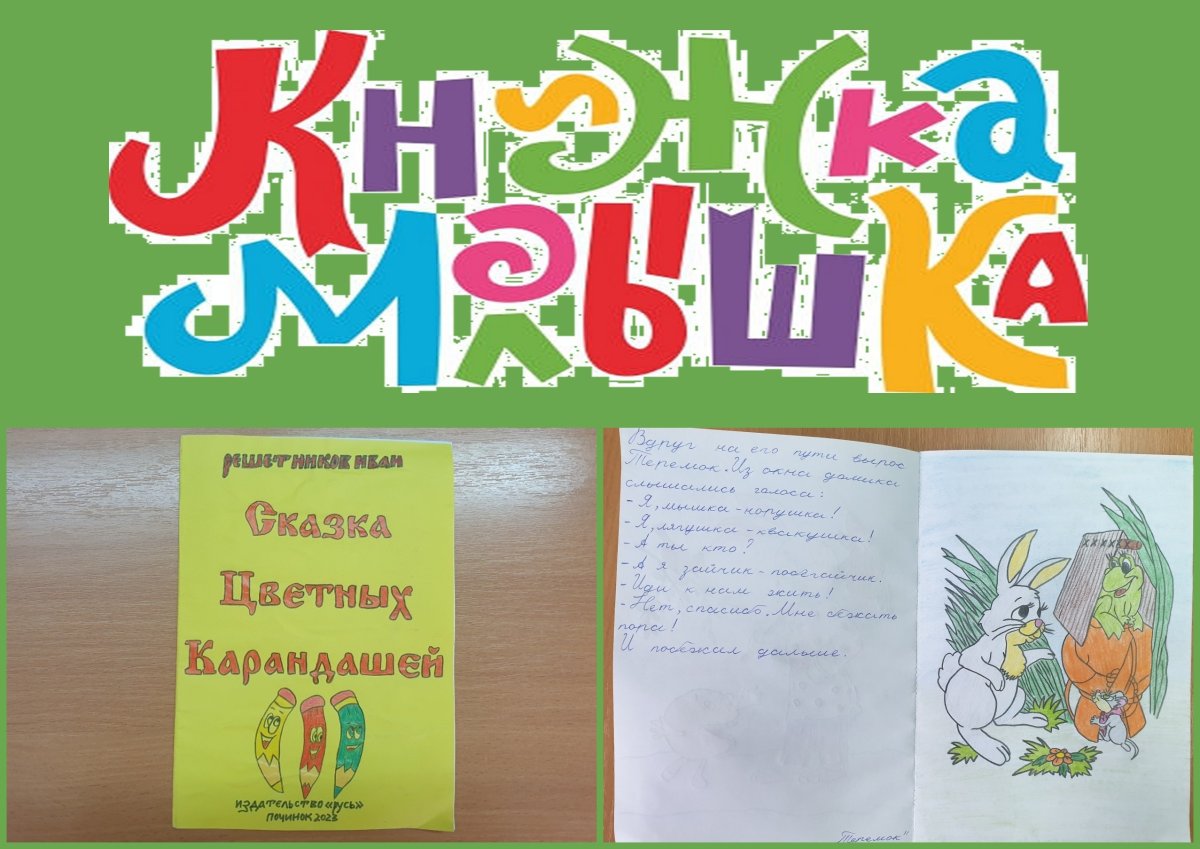 Книжка
Малышка
Решетников Иван
Сказка
Цветных
Карандашей
Издательство «Русь»
Починок 2023
Вдруг на его пути вырос
Теремок. Из окна домика
слышались голоса:
- Я, мышка-норушка!
- Я, лягушка-квакушка!
- А ты кто?
- А я зайчик-побегайчик.
- Иди к нам жить!
- Нет, спасибо. Мне бежать
пора!
И побежал дальше.
Теремок"